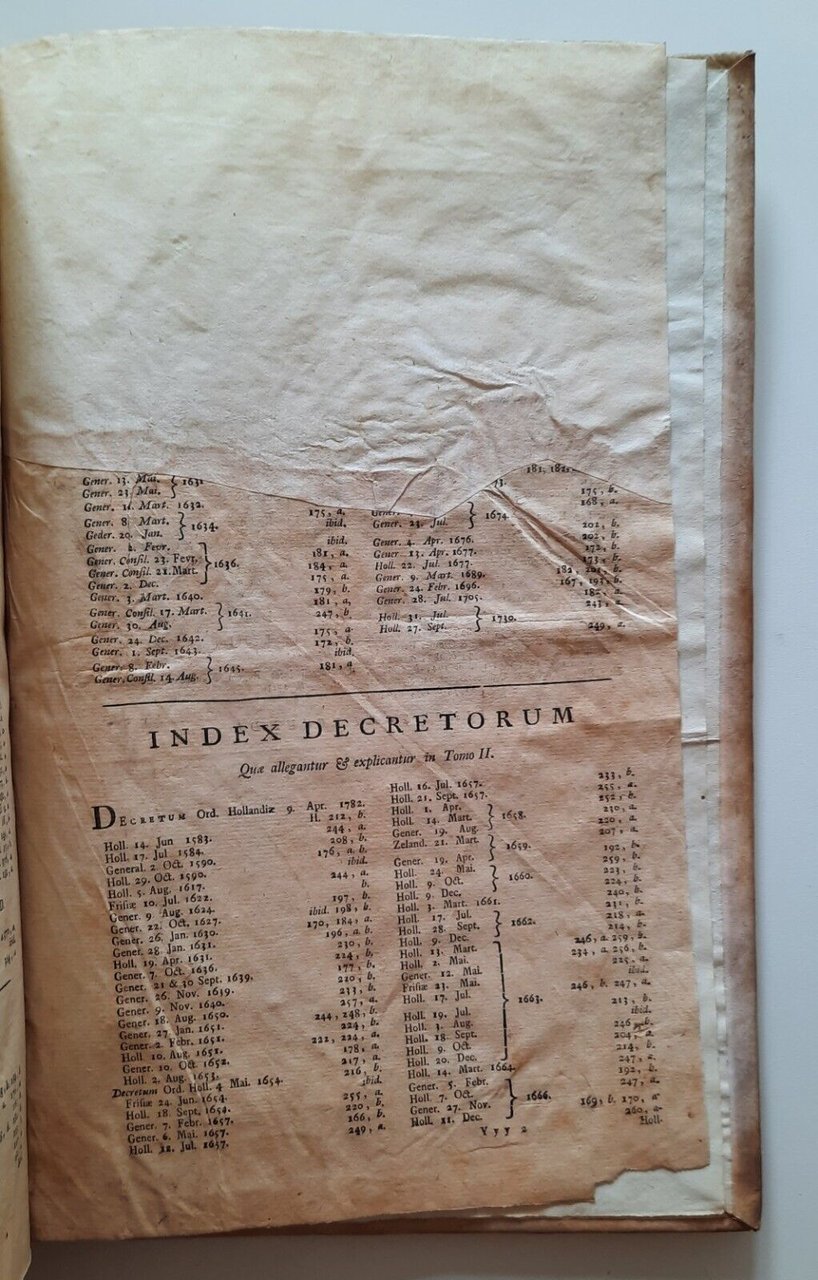 Gener. 13. Mai.
Gener. 23. Mai. } 1631
Gener. 11. Mart. 1632. 175, a.
Gener. 8. Mart.
Geder. 20. Jan. } 1634. ibid.
ibid.
Gener. Febr. 181, a.
Gener. Consil. 23. Fevr. 184, a.
Gener. Consil. 21. Mart. } 1636. 175, a.
Gener. 2. Dec. 179, b.
Gener. 3. Mart. 1640. 181, a.
Gener. Consil. 17. Mart. 247, b.
Gener. 30. Aug. } 1641.
Gener. 24. Dec. 1642. 175, a.
Gener. 1. Sept. 1643. 172, b.
ibid.
Gener. 8. Febr.
Gener. Consil. 14. Aug. } 1645. 181, a
181, 182,
73.
175, b.
168, a.
Gener. 23. Jul. } 1674
Gener. 4. Apr. 1676. 201, b.
Gener 13. Apr. 1677. 202, b.
Holl. 22. Jul. 1677. 172, b.
Gener. 9. Mart. 1689. 173, b.
Gener. 24. Febr. 1696. 182, 201, b.
Gener. 28. Jul. 1705. 167, 193, b.
182, a.
243, a.
Holl. 31. Jul.
Holl. 27. Sept. } 1730. 249, a.
INDEX DECRETORUM
Quæ allegantur & explicantur in Tomo II.
DECRETUM Ord. Hollandiæ 9. Apr. 1782.
H. 212, b.
Holl. 14. Jun 1583. 244, a.
Holl. 17. Jul 1584. 208, b.
General. 2. Oct. 1590. 176, a. b.
Holl. 29. Oct. 1590. ibid.
Holl. 5. Aug. 1617. 244, a.
Frisiæ 10. Jul. 1622. b.
Gener. 9 Aug. 1624. 197, b.
Gener. 22. Oct, 1627. ibid. 198, b.
Gener. 26. Jan. 1630. 170, 184, a.
Gener. 28. Jan. 1631. 196, a. b.
Holl. 19. Apr. 1631. 230, b.
Gener. 7. Oct. 1636. 224, b.
Gener. 21 & 30 Sept. 1639. 177, b.
Gener. 26. Nov. 1639. 220, b.
Gener. 9. Nov. 1640. 233, b.
Gener. 18. Aug. 1650. 257, a.
Gener. 27. Jan. 1651. 244, 248, b.
Gener. 2. Febr. 1651. 224, b.
Holl. 10. Aug. 1651. 222, 224, a.
Gener. 10. Oct. 1652. 178, a.
Holl. 2. Aug. 1653. 217, a.
Decretum Ord. Holl. 4. Mai. 1654. 216, b.
Frisiæ 24. Jun. 1654. ibid.
Holl. 18. Sept. 1654. 255, a.
Gener. 7. Febr. 1657. 220, b.
Gener. 6. Mai. 1657. 166, b.
Holl. 12. Jul. 1657. 249, a.
Holl. 16. Jul. 1657. 233, b.
Holl. 21. Sept. 1657. 255, a.
Holl. 1. Apr. 252, b.
Holl. 14. Mart. } 1658. 210, a.
Gener. 19. Aug. 220, a.
Zeland. 21. Mart. 207, a.
Gener. 19. Apr. } 1659. 192, b.
Holl. 24. Mai. 259, b.
Holl. 9. Oct. } 1660. 223, b.
Holl. 9. Dec. 224, b.
Holl. 3. Mart. 1661. 240, b.
Holl. 17. Jul. 231, b.
Holl. 28. Sept. } 1662. 218, a.
Holl. 9. Dec. 214, b.
Holl. 13. Mart. 246, a. 259, b.
Holl. 2. Mai. 234, a. 256, b.
Gener. 12. Mai. 225, a.
Frisiæ 23. Mai. ibid.
Holl. 17. Jul. 246, b. 247, a.
} 1663.
Holl. 19. Jul. 213, b.
Holl. 3. Aug. ibid.
Holl. 18. Sept. 246, b.
Holl. 9. Oct. 204, a.
Holl. 20. Dec. 214, b.
Holl. 14. Mart. 1664. 247, a.
Gener. 5. Febr. 192, b.
Holl. 7. Oct. } 1666. 247, a.
Gener. 27. Nov. 169, b. 170, a.
Holl. 11. Dec. 260, a.
Yyy 2 Holl.